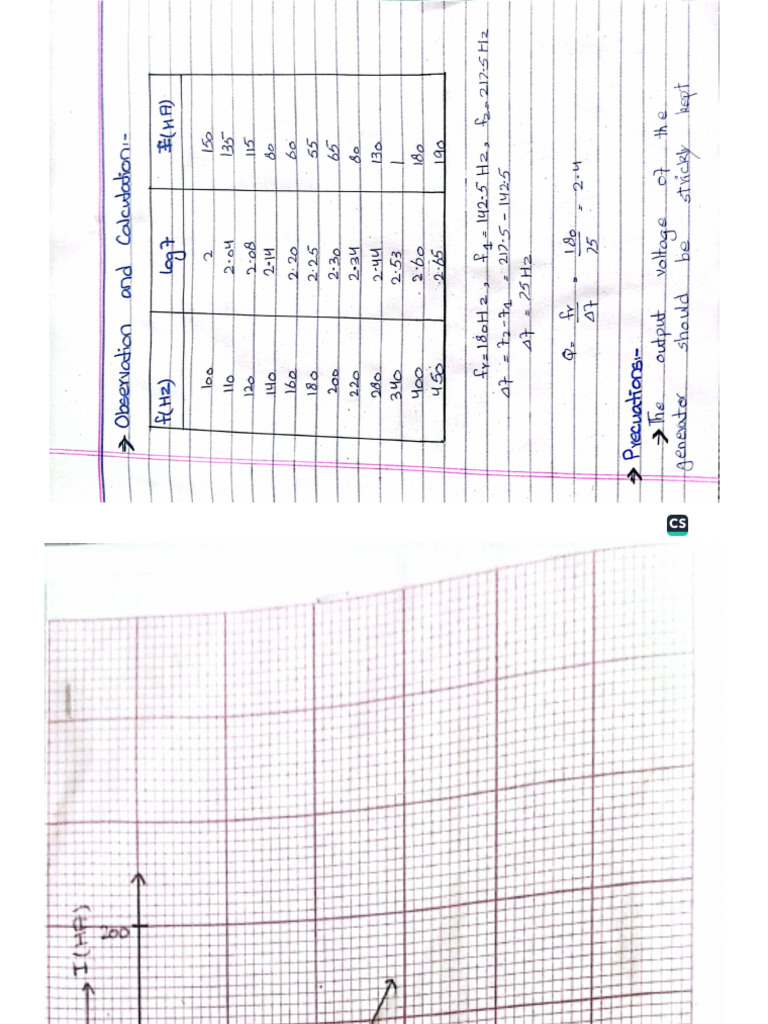 → Observation and Calculation:-
f(Hz) log f I(μA)
100 2 150
110 2.04 135
120 2.08 115
140 2.14 80
160 2.20 60
180 2.25 55
200 2.30 65
220 2.34 80
280 2.44 130
340 2.53 1
400 2.60 180
450 2.65 190
fr = 180Hz, f1 = 142.5 Hz, f2 = 217.5 Hz
Δf = f2 - f1 = 217.5 - 142.5
Δf = 75 Hz
Q = fr/Δf = 180/75 = 2.4
→ Precuations:-
→ The output voltage of the
generator should be stricky kept
CS
→ I (μA)
200